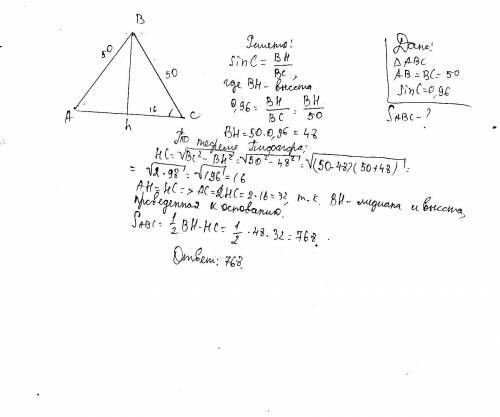 B
50
50
A
16
C
h
Решение:
sin C = BH/BC,
где BH - высота
0,96 = BH/BC = BH/50
BH = 50·0,96 = 48
По теореме Пифагора:
HC = √BC² - BH² = √50² - 48² = √(50-48)(50+48) =
= √2·98 = √196 = 16
AH = HC => AC = 2HC = 2·16 = 32, т.к. BH - медиана и высота,
проведенная к основанию.
S ABC = 1/2 BH·HC = 1/2 · 48·32 = 768.
Ответ: 768.
Дано:
△ABC
AB = BC = 50
sin C = 0,96
S ABC - ?